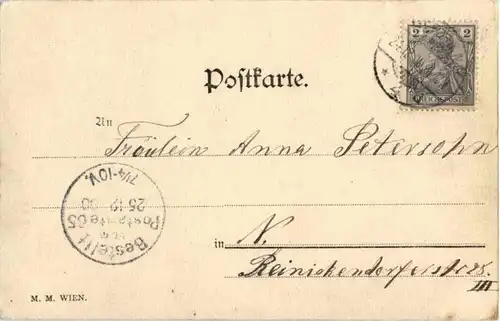 2
REICHSPOST
Postkarte.
An
Fräulein Anna Petersohn
in N.
Reinickendorferstr 28.
III
Bestellt
vom
Postamte 65
25 12 00
7¼-10V.
M. M. WIEN.